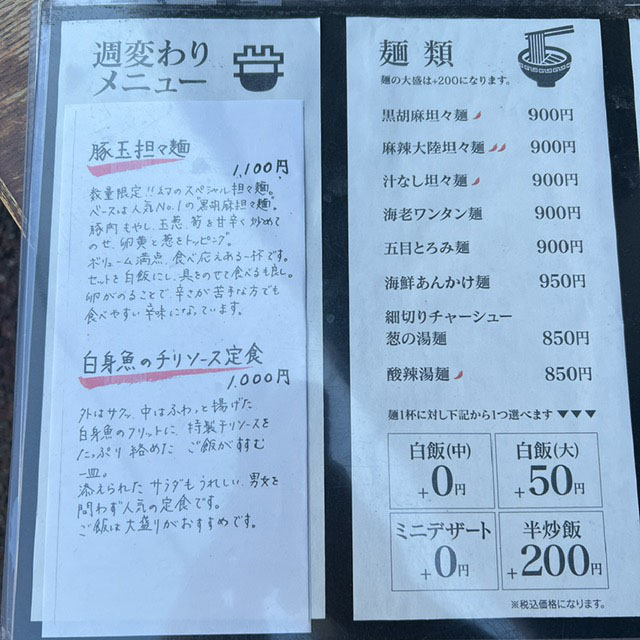 週変わり
メニュー
豚玉担々麺
1,100円
数量限定!!幻のスペシャル担々麺。
ベースは人気No.1の黒胡麻担々麺。
豚肉もやし、玉葱、筍を甘辛く炒めて
のせ、卵黄と葱をトッピング。
ボリューム満点、食べ応えある一杯です。
セットを白飯にし、具をのせて食べるも良し。
卵がのることで、辛さが苦手な方でも
食べやすい辛味になっています。
白身魚のチリソース定食
1,000円
外はサクッ、中はふわっと揚げた
白身魚のフリットに、特製チリソースを
たっぷり絡めた ご飯がすすむ
一皿。
添えられたサラダもうれしい、男女を
問わず人気の定食です。
ご飯は大盛りがおすすめです。
麺 類
麺の大盛は+200になります。
黒胡麻坦々麺 900円
麻辣大陸坦々麺 900円
汁なし坦々麺 900円
海老ワンタン麺 900円
五目とろみ麺 900円
海鮮あんかけ麺 950円
細切りチャーシュー
葱の湯麺 850円
酸辣湯麺 850円
麺1杯に対し下記から1つ選べます▼▼▼
白飯(中)
+0円
白飯(大)
+50円
ミニデザート
+0円
半炒飯
+200円
※税込価格になります。